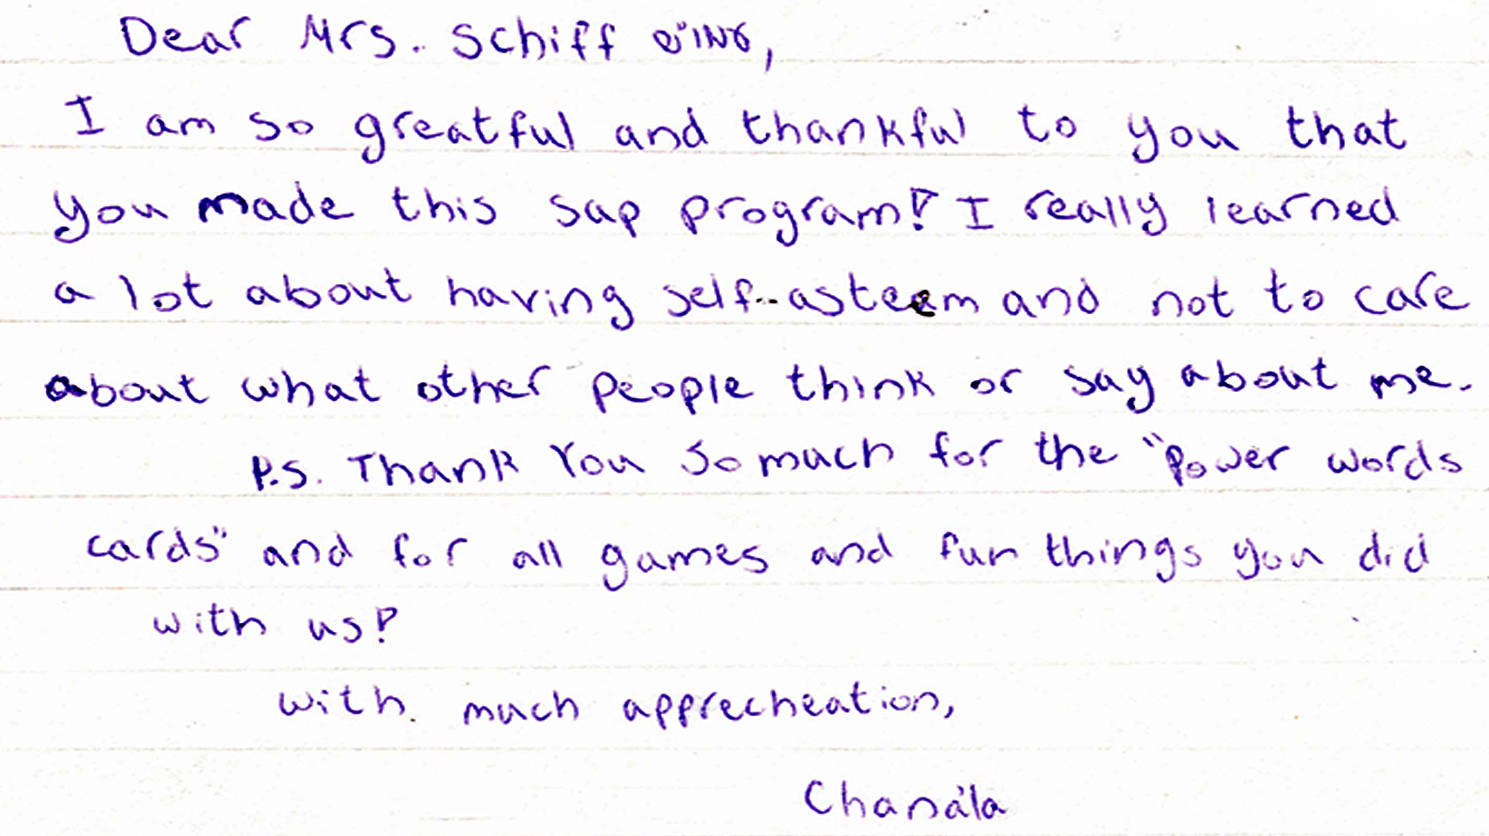 Dear Mrs. Schiff שתחי',
I am so greatful and thankful to you that
you made this sap program! I really learned
a lot about having self-asteem and not to care
about what other people think or say about me.
P.S. Thank You So much for the "power words
cards" and for all games and fun things you did
with us!
with much apprecheation,
Chana'la